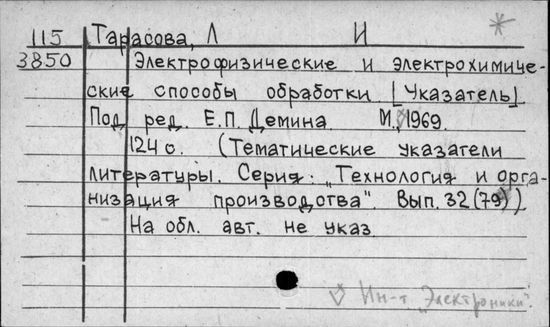 115 Тарасова, Л И
3850 Электрофизические и электрохимиче-
ские способы обработки [Указатель]
Под ред. Е.П. Демина. М., 1969.
124 с. (Тематические указатели
литературы. Серия: "Технология и орга-
низация производства". Вып. 32 (79))
На обл. авт. не указ.
Ин-т "Электроники".